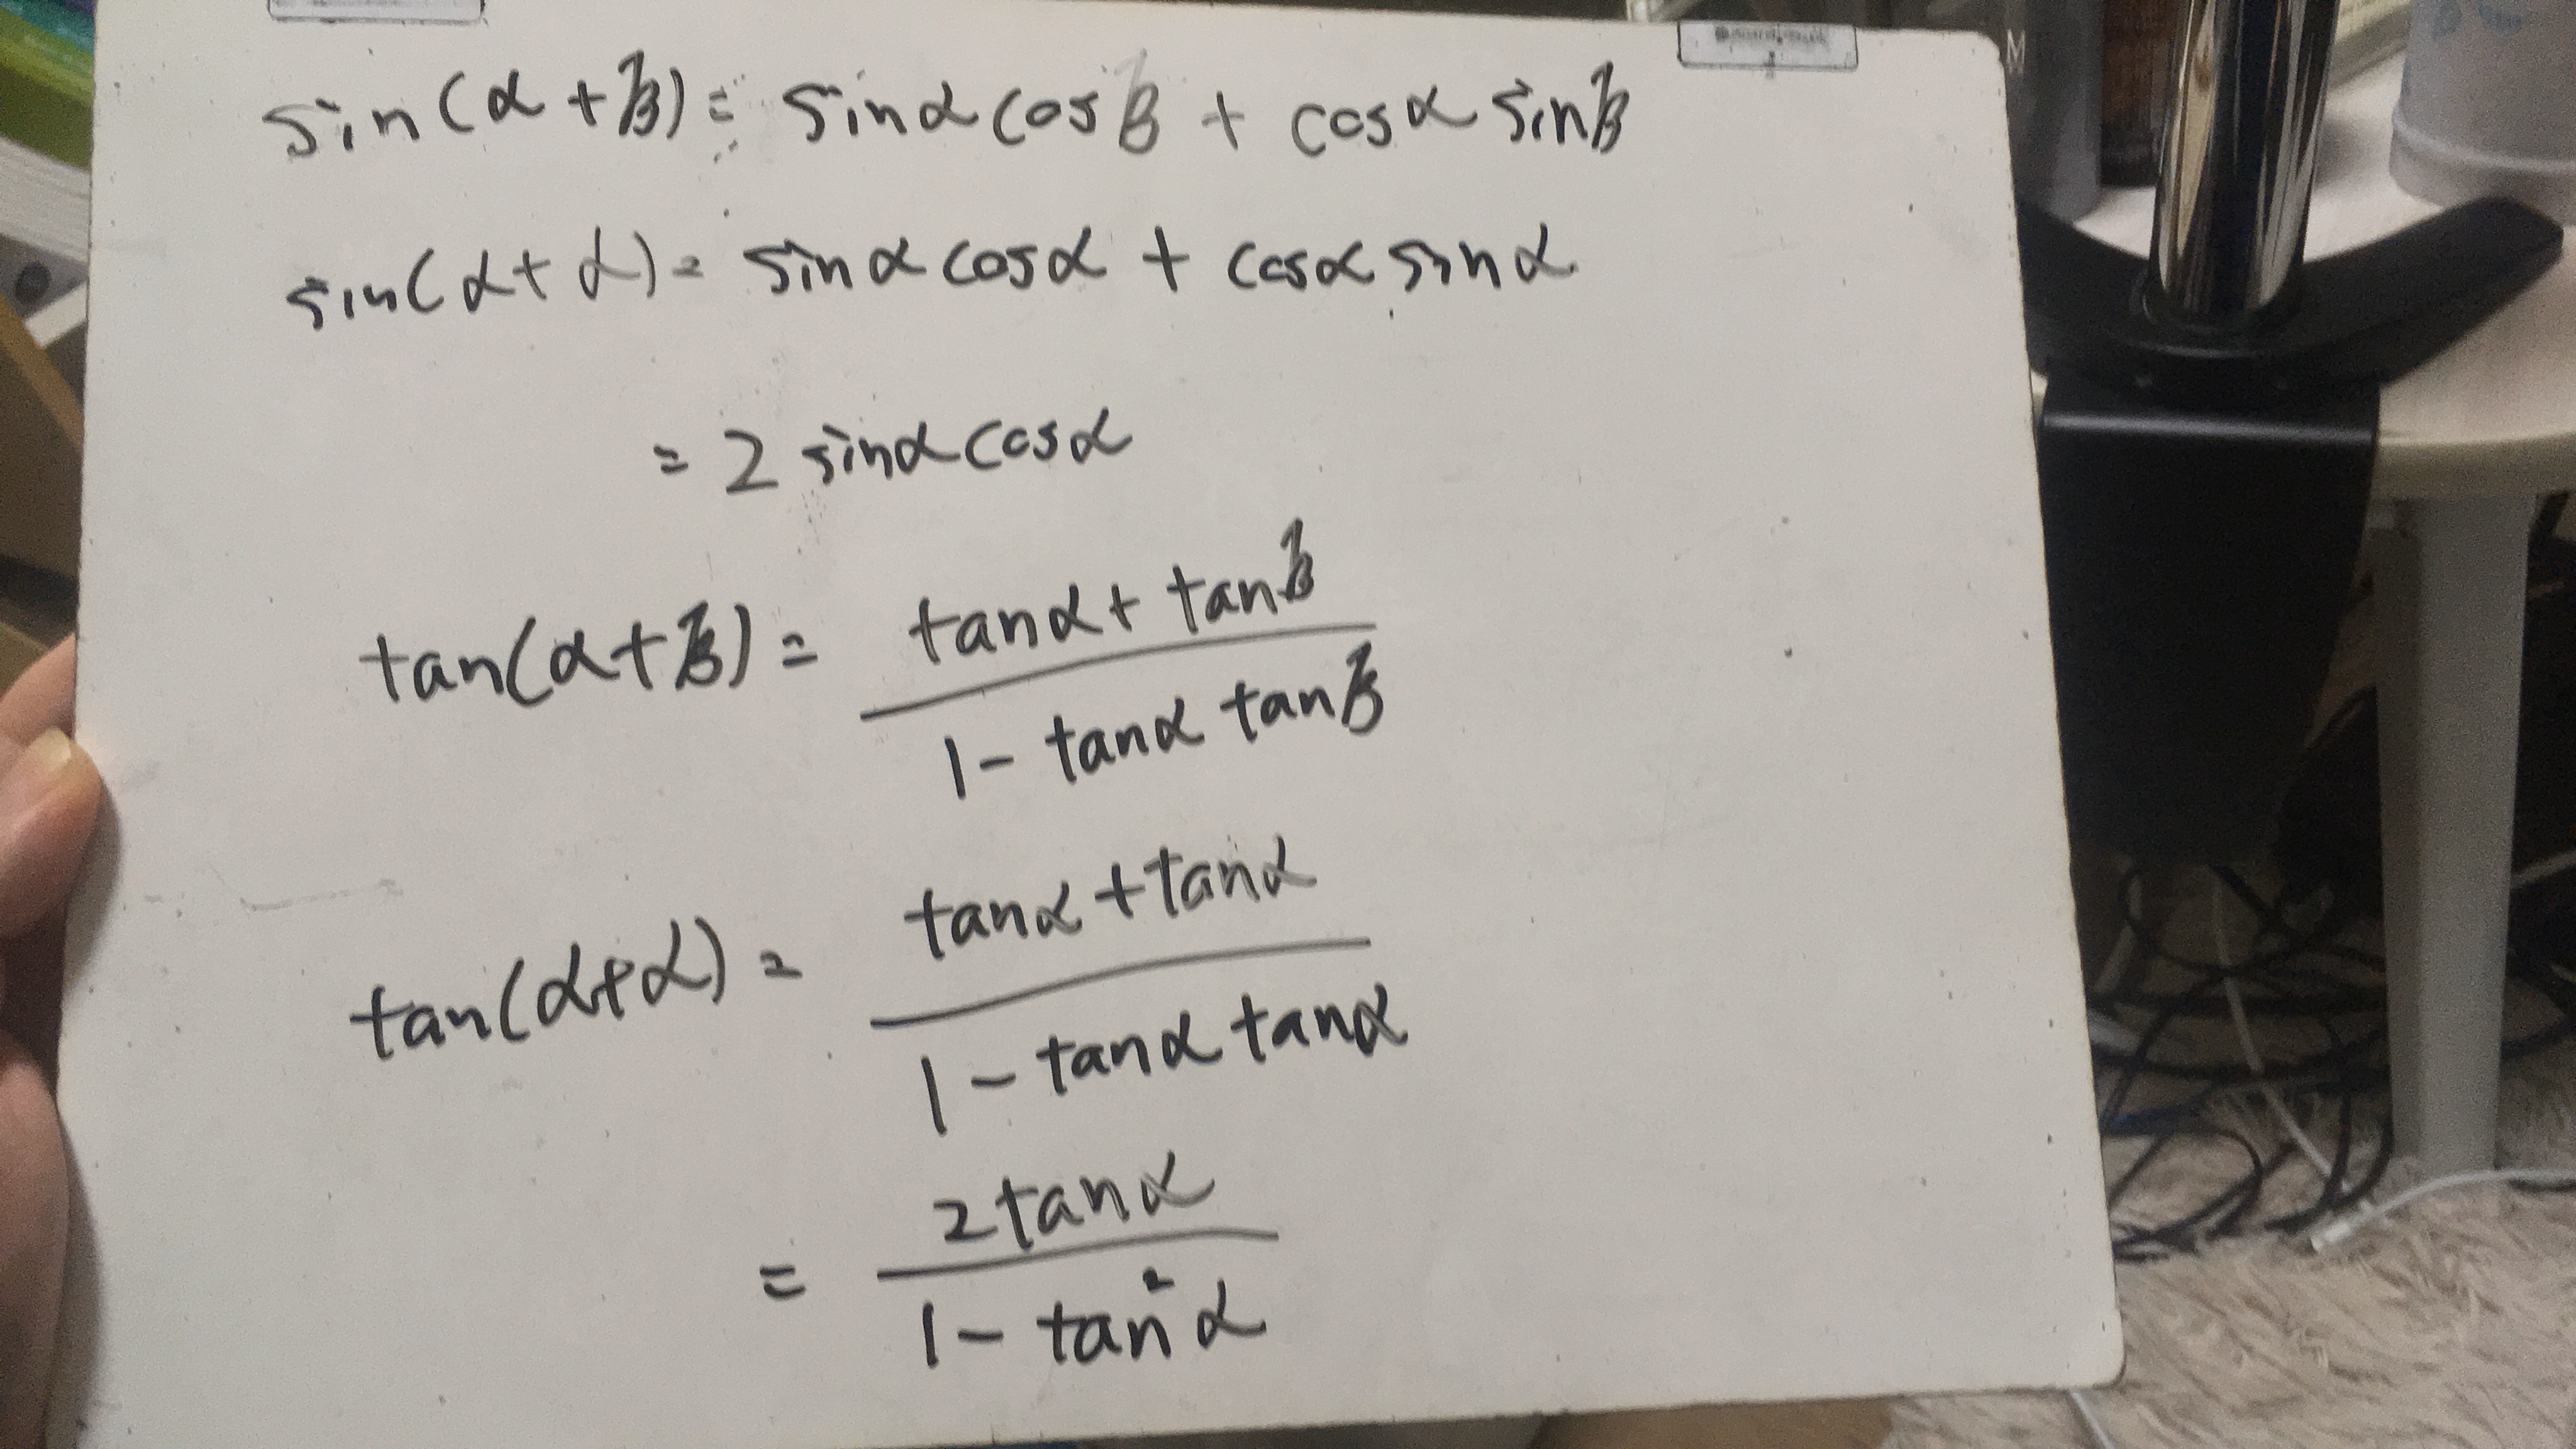 sin(α+β) = sinα cosβ + cosα sinβ
sin(α+α) = sinα cosα + cosα sinα
= 2 sinα cosα
tan(α+β) = (tanα + tanβ) / (1 - tanα tanβ)
tan(α+α) = (tanα + tanα) / (1 - tanα tanα)
= 2tanα / (1 - tan²α)